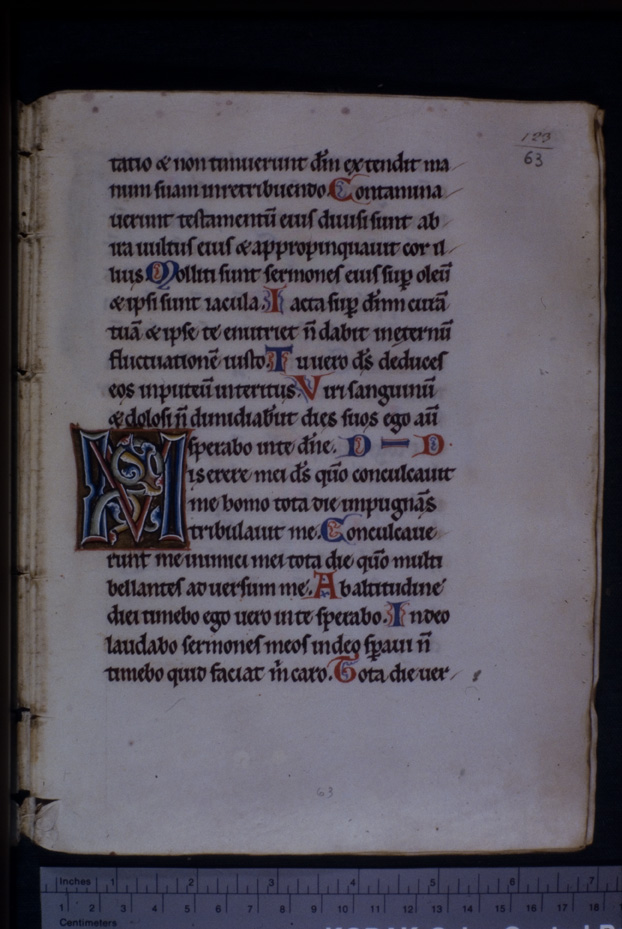 123
63
tatio & non timuerunt dm̄ extendit ma
num suam inretribuendo. Contamina
uerunt testamentū eius diuisi sunt ab
ira uultus eius & appropinquauit cor il
lius Molliti sunt sermones eius sup̄ oleū
& ipsi sunt iacula. Iacta sup̄ dn̄m curā
tuā & ipse te enutriet n̄ dabit ineternū
fluctuationē iusto. Tu uero d̄s deduces
eos inputeū interitus. Viri sanguinū
& dolosi n̄ dimidiab̄ut dies suos ego aū
sperabo inte dn̄e. D — D
Miserere mei d̄s qūo conculcauit
me homo tota die impugnās
tribulauit me. Conculcaue
runt me inimici mei tota die qūo multi
bellantes aduersum me. Abaltitudine
diei timebo ego uero inte sperabo. Indeo
laudabo sermones meos indeo sp̄aui n̄
timebo quid faciat m̄ caro. Tota die uer
63
Inches 1 2 3 4 5 6 7
1 2 3 4 5 6 7 8 9 10 11 12 13 14 15 16 17 18
Centimeters